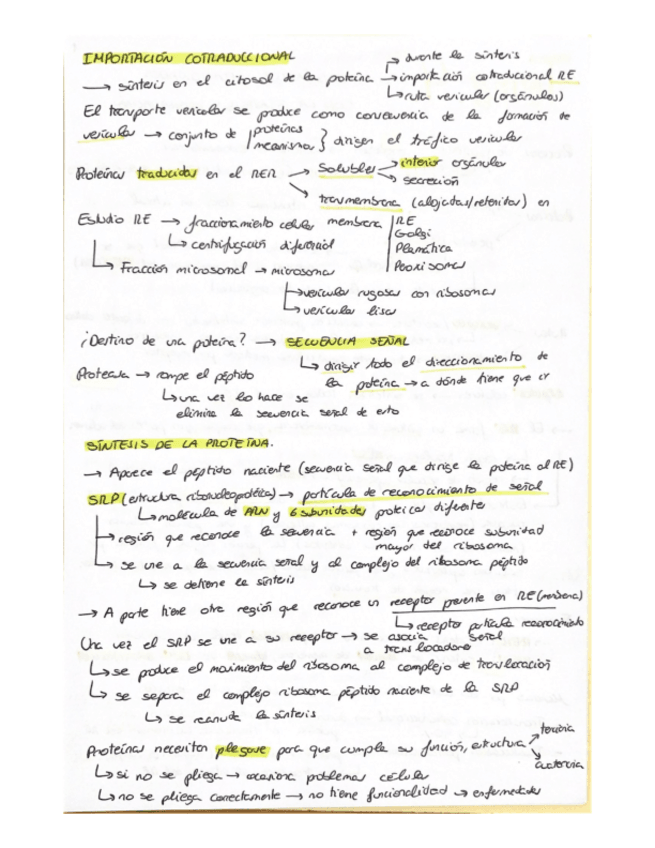 IMPORTACIÓN COTRADUCCIONAL → durante la síntesis
→ síntesis en el citosol de la proteína → importación cotraducional RE
↳ ruta vesicular (orgánulos)
El transporte vesicular se produce como consecuencia de la formación de
vesículas → conjunto de proteínas mecanismos } dirigen el tráfico vesicular
Proteínas traducidas en el RER → solubles → interior orgánulos
→ secreción
→ transmembrana (alojadas/retenidas) en
Estudio RE → fraccionamiento celular membrana RE
↳ centrifugación diferencial Golgi
Plasmática
↳ Fracción microsomal → microsomas Peroxisomas
↳ vesículas rugosas con ribosomas
↳ vesículas lisas
¿Destino de una proteína? → SECUENCIA SEÑAL
↳ dirigir todo el direccionamiento de
Proteasa → rompe el péptido la proteína → a dónde tiene que ir
↳ una vez lo hace se
elimina la secuencia señal de esto
SÍNTESIS DE LA PROTEÍNA.
→ Aparece el péptido naciente (secuencia señal que dirige la proteína al RE)
SRP (estructura ribonucleoproteica) → partícula de reconocimiento de señal
↳ molécula de ARN y 6 subunidades proteicas diferentes
→ región que reconoce la secuencia + región que reconoce subunidad
mayor del ribosoma
↳ se une a la secuencia señal y al complejo del ribosoma péptido
↳ se detiene la síntesis
→ A parte tiene otra región que reconoce un receptor presente en RE (membrana)
↳ receptor partícula reconocimiento
señal
Una vez el SRP se une a su receptor → se asocia
a translocadora
↳ se produce el movimiento del ribosoma al complejo de translocación
↳ se separa el complejo ribosoma péptido naciente de la SRP
↳ se reanuda la síntesis
Proteínas necesitan plegarse para que cumpla su función, estructura → terciaria
↘ cuaternaria
↳ si no se pliega → ocasiona problemas célula
↳ no se pliega correctamente → no tiene funcionalidad → enfermedades